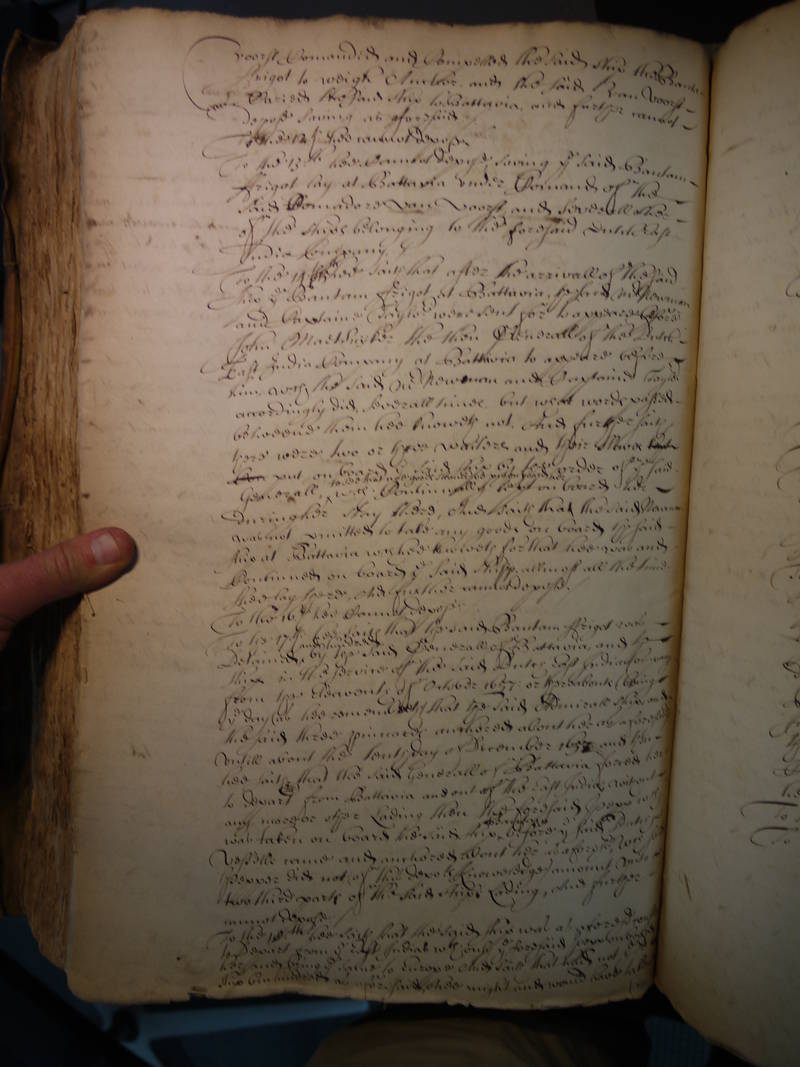 voorst Comanded and Compelled the said ship the Bantam
ffrigot to weigh Anchor, and the said Van Voorst
Carried the said ship to Battavia, and further cannot
depose saving as aforesaid
To the 12th hee cannot depose
To the 13th hee Cannot depose saving ye said Bantam
ffrigot lay at Battavia under Comand of the
said Comadore van Voorst and severall other
of the shipps belonging to the foresaid Dutch East
India Company
To the 14th hee saith that after the arrivall of the said
ship ye Bantam ffrigot at Battavia, the said Mr Newman
and Captaine Taylor were sent for to appeare before
John Maetsuyker the then Generall of the Dutch
East India Company at Battavia to appeare before
him, wch the said Mr Newman and Captaine Taylor
accordingly did, severall times, but what words passed
betweene them hee knoweth not, And further saith
there were two or three waiters and their
put on board ye said ship by the order of ye said
Generall, was Continually kept on board her
during her stay there, And saith that the said
was not permitted to take any goods on board the said
ship at Battavia wch hee knoweth for that hee was and
Continued on board ye said shipp all most all the time
shee lay there, And further cannot depose.
To the 16th hee Cannot depose
To the 17th hee saith that the said Bantam ffrigot was
Detained by the said Generall of Battavia, and the
in the service of the said Dutch East India Company
from the Eleaventh of October 1657 or thereabouts (being
ye day as hee remembreth that the said Admirall ship and
the said three pinnaces anchored about her as aforesaid
untill about the tenth day of December 1657 and then
hee saith that the said Generall of Battavia forced her
to depart from Battavia and out of the East Indies without
any more or other Lading then the foresaid pepper wch
was taken on board the said ship, before ye said Dutch
Vessells came and anchored about her as aforesaid, wch
Pepper did not of this deponts knowledge amount unto
two third parts of the said ships Lading, And further
cannot depose
To the 18th hee saith that the said ship was as aforesaid
to depart from ye East Indies wth onely ye foresaid
her, and to come to Europe And saith that had not ye
ship bin hindred as aforesaid, shee might and would have